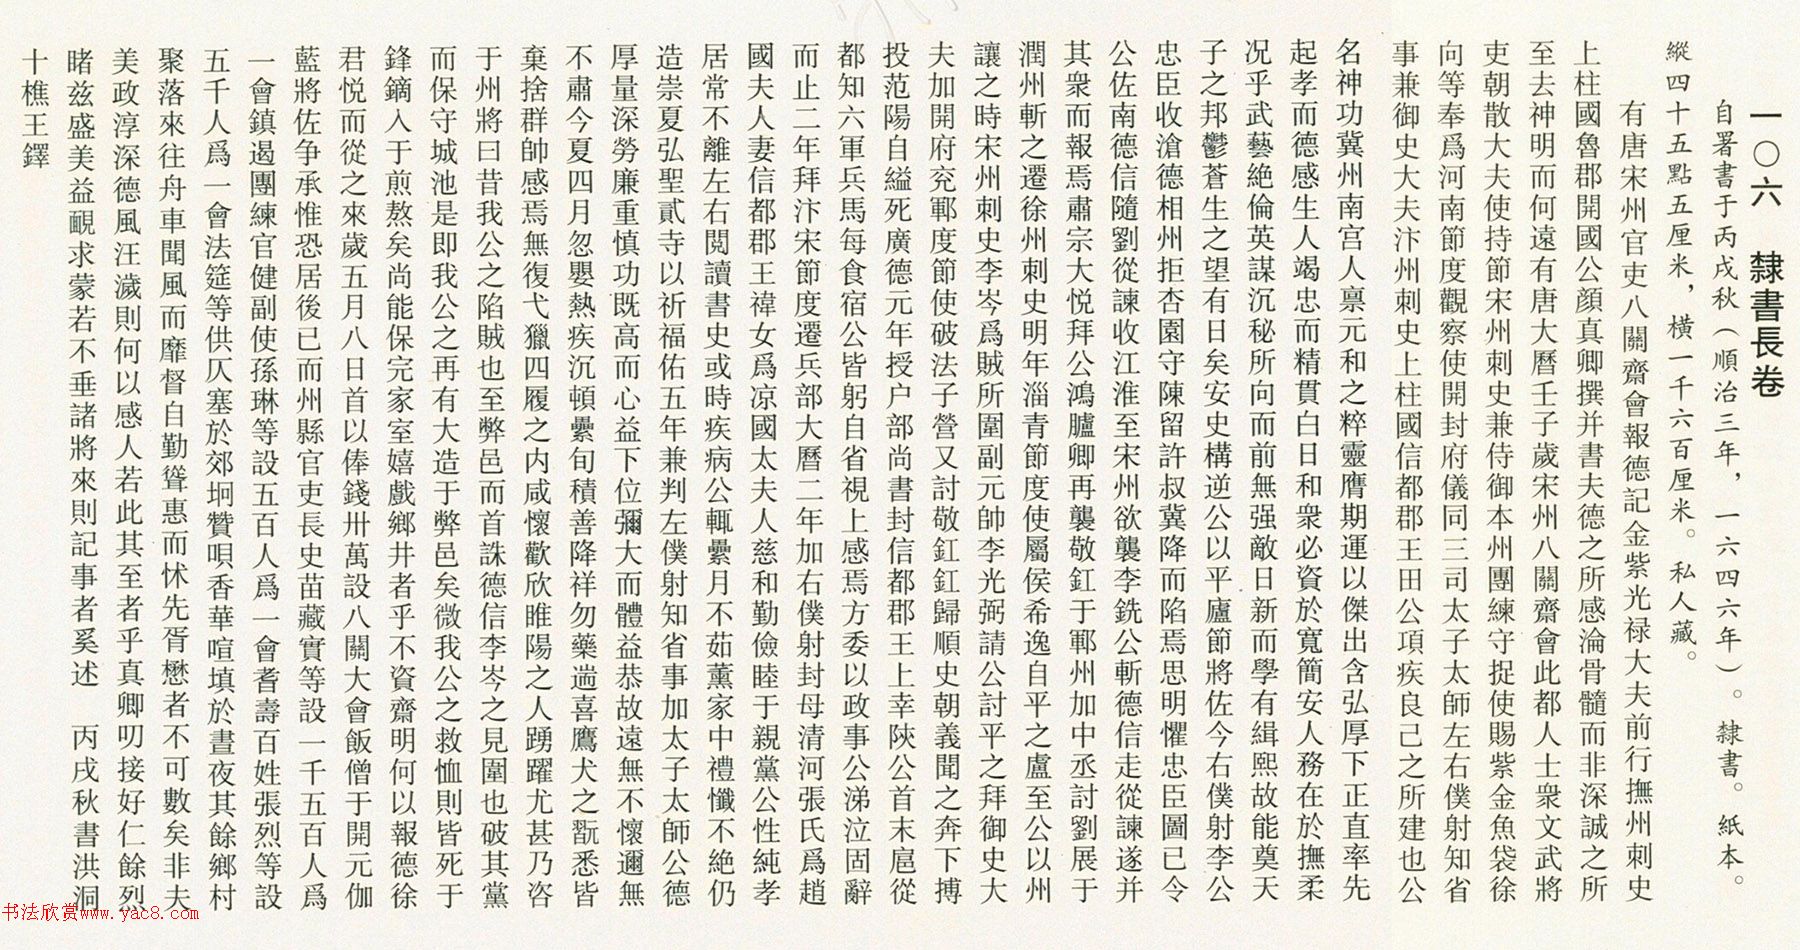 一〇六　隸書長卷
自署書于丙戌秋（順治三年，一六四六年）。隸書。紙本。
縱四十五點五厘米，橫一千六百厘米。私人藏。
有唐宋州官吏八關齋會報德記金紫光禄大夫前行撫州刺史
上柱國魯郡開國公顔真卿撰并書夫德之所感淪骨髓而非深誠之所
至去神明而何遠有唐大曆壬子歲宋州八關齋會此都人士衆文武將
吏朝散大夫使持節宋州刺史兼侍御本州團練守捉使賜紫金魚袋徐
向等奉爲河南節度觀察使開封府儀同三司太子太師左右僕射知省
事兼御史大夫汴州刺史上柱國信都郡王田公項疾良己之所建也公
名神功冀州南宫人禀元和之粹靈膺期運以傑出含弘厚下正直率先
起孝而德感生人竭忠而精貫白日和衆必資於寬簡安人務在於撫柔
况乎武藝絶倫英謀沉秘所向而前無强敵日新而學有緝熙故能奠天
子之邦鬱蒼生之望有日矣安史構逆公以平廬節將佐今右僕射李公
忠臣收滄德相州拒杏園守陳留許叔冀降而陷焉思明懼忠臣圖已令
公佐南德信隨劉從諫收江淮至宋州欲襲李銑公斬德信走從諫遂并
其衆而報焉肅宗大悦拜公鴻臚卿再襲敬釭于鄆州加中丞討劉展于
潤州斬之遷徐州刺史明年淄青節度使屬侯希逸自平之盧至公以州
讓之時宋州刺史李岑爲賊所圍副元帥李光弼請公討平之拜御史大
夫加開府兖鄆度節使破法子營又討敬釭釭歸順史朝義聞之奔下搏
投范陽自縊死廣德元年授户部尚書封信都郡王上幸陝公首末扈從
都知六軍兵馬每食宿公皆躬自省視上感焉方委以政事公涕泣固辭
而止二年拜汴宋節度遷兵部大曆二年加右僕射封母清河張氏爲趙
國夫人妻信都郡王褘女爲凉國太夫人慈和勤儉睦于親黨公性純孝
居常不離左右閲讀書史或時疾病公輒纍月不茹薰家中禮懺不絶仍
造崇夏弘聖貳寺以祈福佑五年兼判左僕射知省事加太子太師公德
厚量深勞廉重慎功既高而心益下位彌大而體益恭故遠無不懷邇無
不肅今夏四月忽嬰熱疾沉頓纍旬積善降祥勿藥耑喜鷹犬之翫悉皆
棄捨群帥感焉無復弋獵四履之内咸懷歡欣睢陽之人踴躍尤甚乃咨
于州將曰昔我公之陷賊也至弊邑而首誅德信李岑之見圍也破其黨
而保守城池是即我公之再有大造于弊邑矣微我公之救恤則皆死于
鋒鏑入于煎熬矣尚能保完家室嬉戲鄉井者乎不資齋明何以報德徐
君悦而從之來歲五月八日首以俸錢卅萬設八關大會飯僧于開元伽
藍將佐争承惟恐居後已而州縣官吏長史苗藏實等設一千五百人爲
一會鎮遏團練官健副使孫琳等設五百人爲一會耆壽百姓張烈等設
五千人爲一會法筵等供仄塞於郊坰贊唄香華喧填於晝夜其餘鄉村
聚落來往舟車聞風而靡督自勤聳惠而怵先胥懋者不可數矣非夫
美政淳深德風汪濊則何以感人若此其至者乎真卿叨接好仁餘烈
睹兹盛美益覼求蒙若不垂諸將來則記事者奚述　丙戌秋書洪洞
十樵王鐸
书法欣赏www.yac8.com